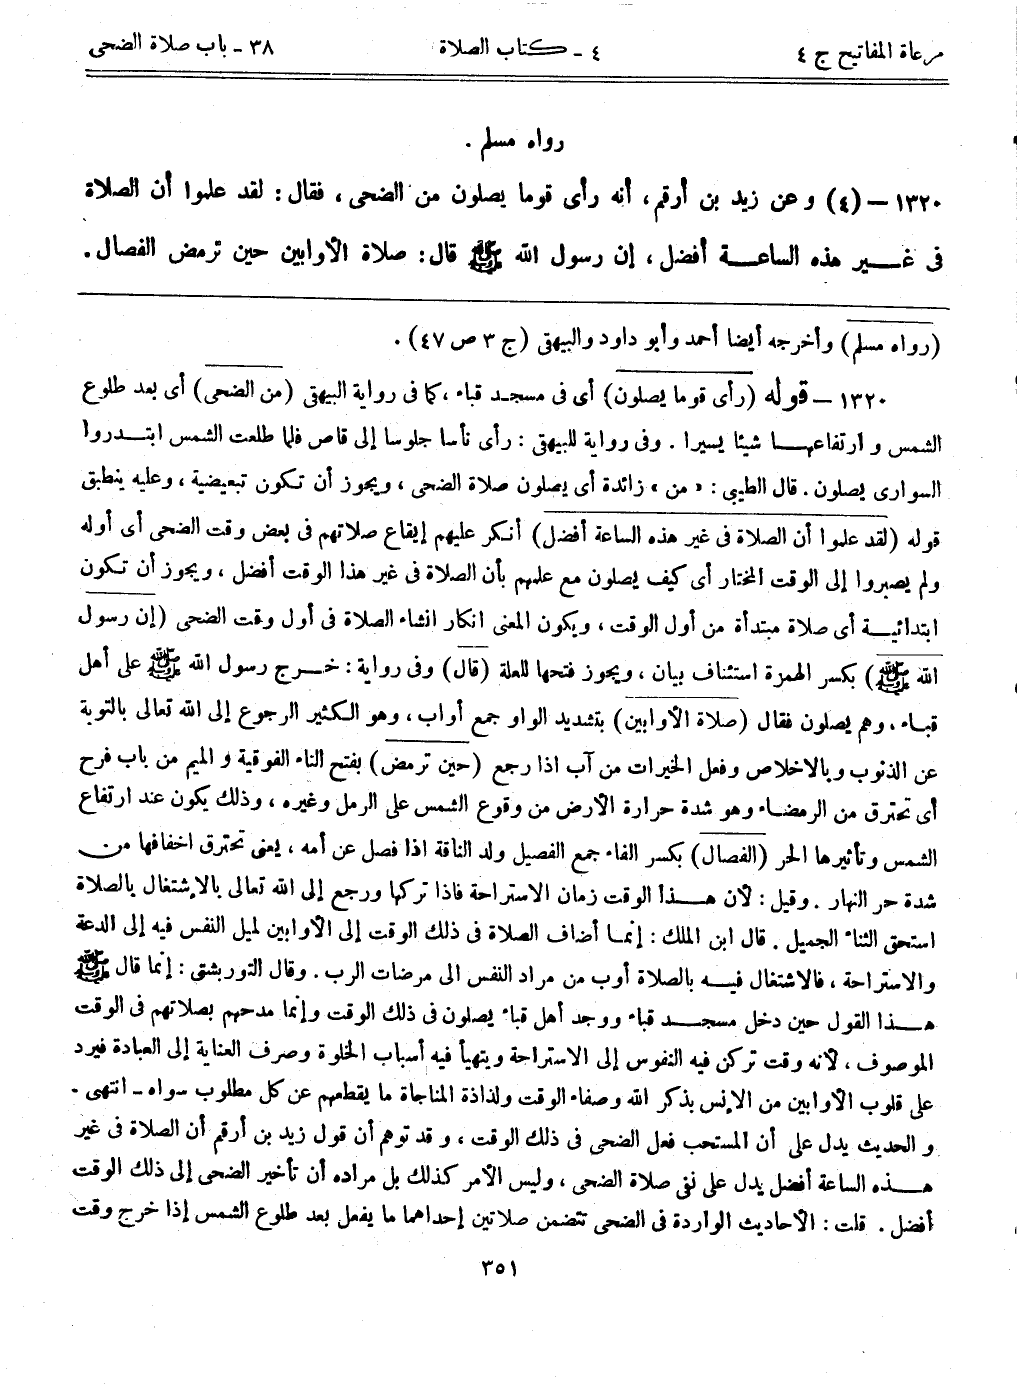 مرعاة المفاتيح ج ٤ ٤ ـ كتاب الصلاة ٣٨ ـ باب صلاة الضحى
رواه مسلم .
١٣٢٠ – (٤) وعن زيد بن أرقم، أنه رأى قوما يصلون من الضحى، فقال: لقد علموا أن الصلاة
فى غير هذه الساعة أفضل، إن رسول الله ﷺ قال: صلاة الأوابين حين ترمض الفصال.
(رواه مسلم) وأخرجه أيضا أحمد وأبو داود والبيهقى (ج ٣ ص ٤٧) .
١٣٢٠ – قوله (رأى قوما يصلون) أى فى مسجد قباء، كما فى رواية البيهقى (من الضحى) أى بعد طلوع
الشمس و ارتفاعها شيئا يسيرا . وفى رواية للبيهقى : رأى نأسا جلوسا إلى قاص فلما طلعت الشمس ابتدروا
السوارى يصلون . قال الطيبى : « من » زائدة أى يصلون صلاة الضحى ، ويجوز أن تكون تبعيضية ، وعليه ينطبق
قوله (لقد علموا أن الصلاة فى غير هذه الساعة أفضل) أنكر عليهم إيقاع صلاتهم فى بعض وقت الضحى أى أوله
ولم يصبروا إلى الوقت المختار أى كيف يصلون مع علمهم بأن الصلاة فى غير هذا الوقت أفضل ، ويجوز أن تكون
ابتدائية أى صلاة مبتدأة من أول الوقت ، ويكون المعنى انكار انشاء الصلاة فى أول وقت الضحى (إن رسول
الله ﷺ) بكسر الهمزة استئناف بيان ، ويجوز فتحها للعلة (قال) وفى رواية : خرج رسول الله ﷺ على أهل
قباء ، وهم يصلون فقال (صلاة الأوابين) بتشديد الواو جمع أواب ، وهو الكثير الرجوع إلى الله تعالى بالتوبة
عن الذنوب وبالاخلاص وفعل الخيرات من آب اذا رجع (حين ترمض) بفتح التاء الفوقية و الميم من باب فرح
أى تحترق من الرمضاء وهو شدة حرارة الأرض من وقوع الشمس على الرمل وغيره ، وذلك يكون عند ارتفاع
الشمس وتأثيرها الحر (الفصال) بكسر الفاء جمع الفصيل ولد الناقة اذا فصل عن أمه ، يعنى تحترق اخفافها من
شدة حر النهار . وقيل : لأن هذا الوقت زمان الاستراحة فاذا تركها ورجع إلى الله تعالى بالإشتغال بالصلاة
استحق الثناء الجميل . قال ابن الملك : إنما أضاف الصلاة فى ذلك الوقت إلى الأوابين لميل النفس فيه إلى الدعة
والاستراحة ، فالاشتغال فيه بالصلاة أوب من مراد النفس الى مرضات الرب . وقال التوربشتى : إنما قال ﷺ
هذا القول حين دخل مسجد قباء ووجد أهل قباء يصلون فى ذلك الوقت وإنما مدحهم بصلاتهم فى الوقت
الموصوف ، لأنه وقت تركن فيه النفوس إلى الاستراحة ويتهيأ فيه أسباب الخلوة وصرف العناية إلى العبادة فيرد
على قلوب الأوابين من الإنس بذكر الله وصفاء الوقت ولذاذة المناجاة ما يقطعهم عن كل مطلوب سواه ـ انتهى .
و الحديث يدل على أن المستحب فعل الضحى فى ذلك الوقت ، و قد توهم أن قول زيد بن أرقم أن الصلاة فى غير
هذه الساعة أفضل يدل على نفى صلاة الضحى ، وليس الأمر كذلك بل مراده أن تأخير الضحى إلى ذلك الوقت
أفضل . قلت : الأحاديث الواردة فى الضحى تتضمن صلاتين إحداهما ما يفعل بعد طلوع الشمس إذا خرج وقت
٣٥١